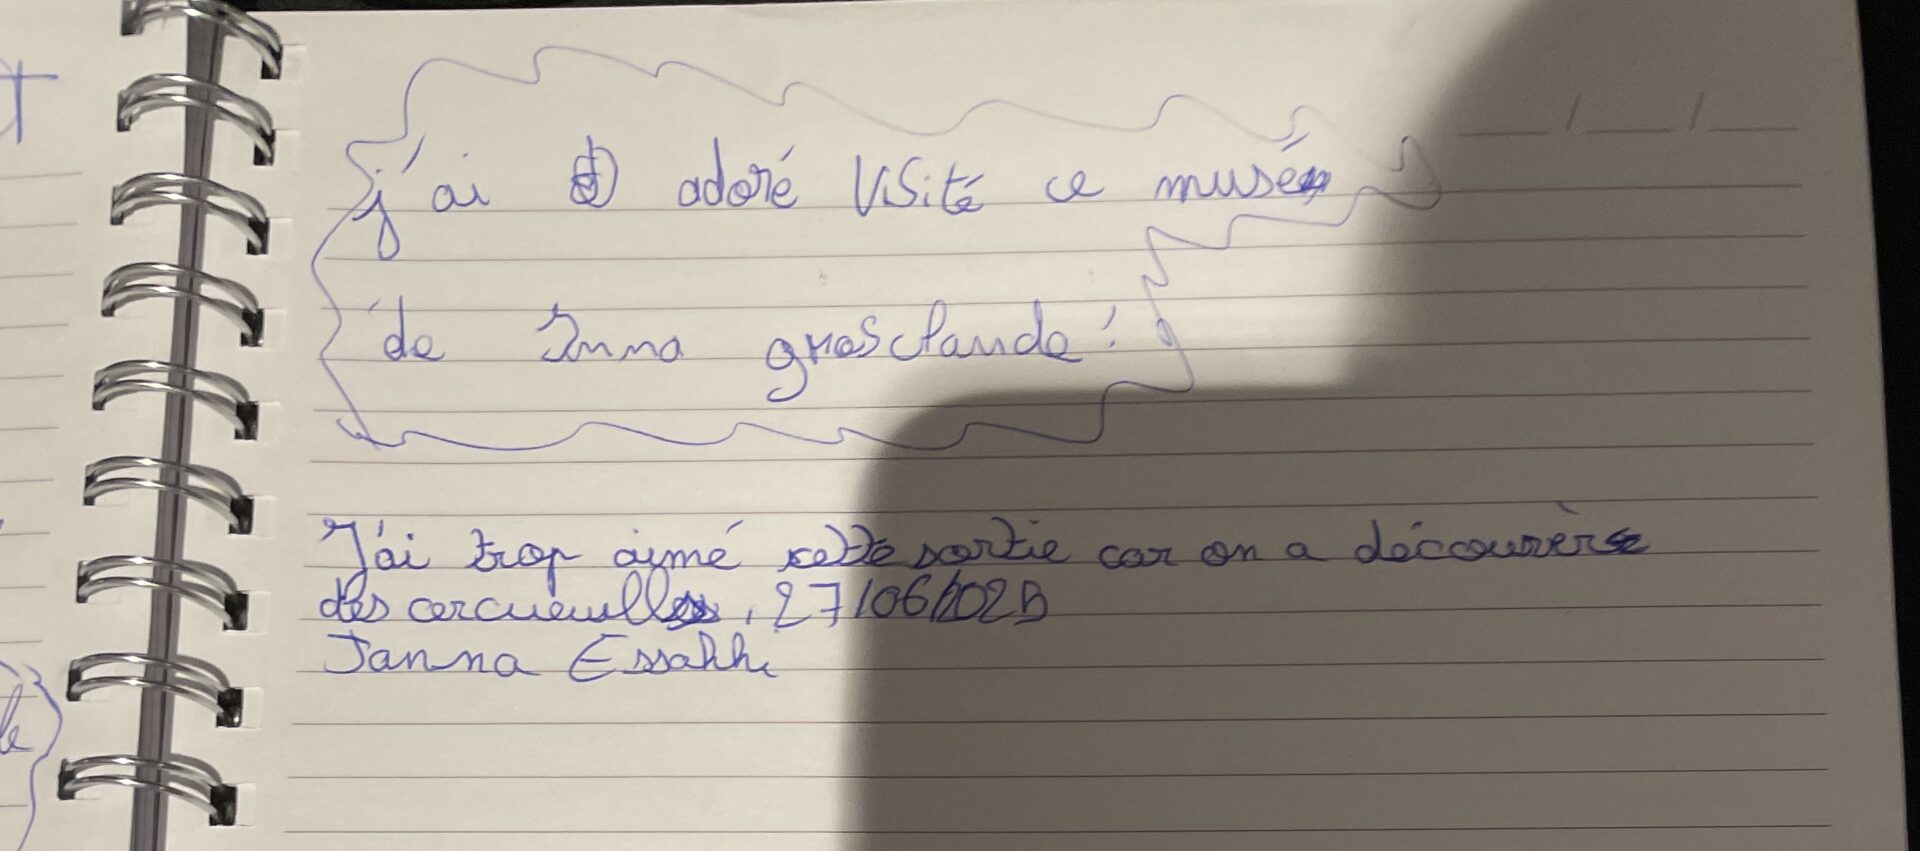 j'ai adoré visité ce musée
de Inna grosclaude !
J'ai trop aimé cette sortie car on a
des 27/06/2025
Janna Essahhi